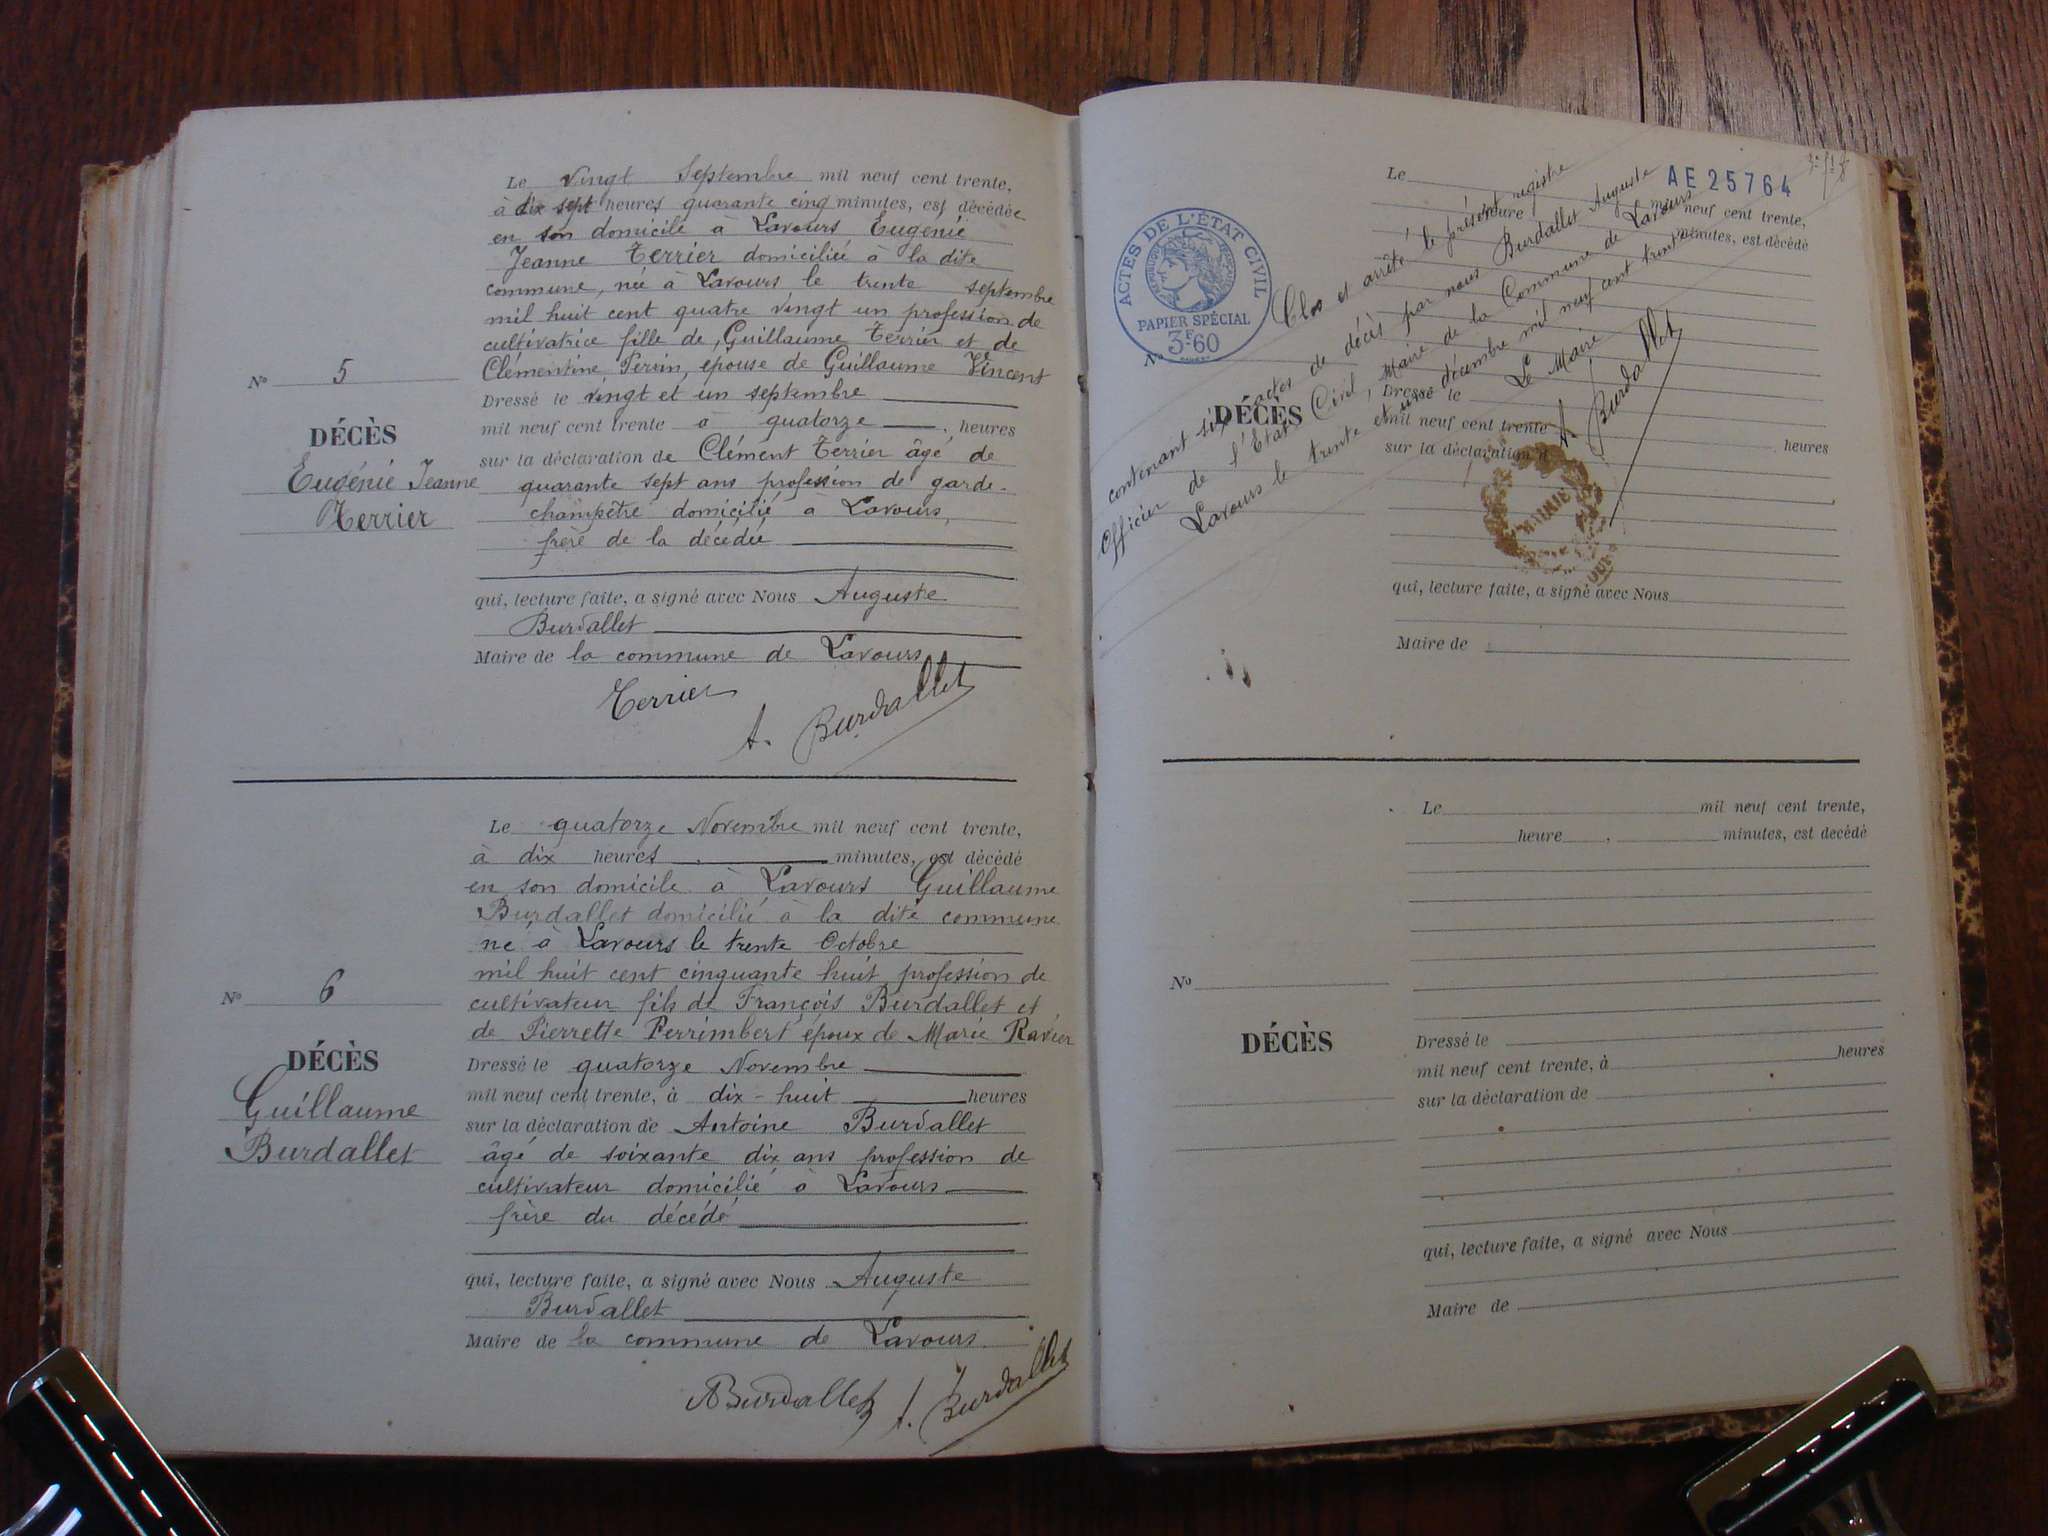 Le vingt Septembre mil neuf cent trente,
à dix sept heures quarante cinq minutes, est décédée
en son domicile à Lavours Eugénie
Jeanne Terrier domiciliée à la dite
commune, née à Lavours le trente septembre
mil huit cent quatre vingt un profession de
cultivatrice fille de Guillaume Terrier et de
Clémentine Perrin, épouse de Guillaume Vincent
Dressé le vingt et un septembre
mil neuf cent trente à quatorze heures
sur la déclaration de Clément Terrier âgé de
quarante sept ans profession de garde-
champêtre domicilié à Lavours,
frère de la décédée
qui, lecture faite, a signé avec Nous Auguste
Burdallet
Maire de la commune de Lavours
Terrier
A. Burdallet
No 5
DÉCÈS
Eugénie Jeanne
Terrier
Le quatorze Novembre mil neuf cent trente,
à dix heures minutes, est décédé
en son domicile à Lavours Guillaume
Burdallet domicilié à la dite commune
né à Lavours le trente Octobre
mil huit cent cinquante huit profession de
cultivateur fils de François Burdallet et
de Pierrette Perrimbert époux de Marie Ravier
Dressé le quatorze Novembre
mil neuf cent trente, à dix-huit heures
sur la déclaration de Antoine Burdallet
âgé de soixante dix ans profession de
cultivateur domicilié à Lavours
frère du décédé
qui, lecture faite, a signé avec Nous Auguste
Burdallet
Maire de la commune de Lavours
ABurdallet A. Burdallet
No 6
DÉCÈS
Guillaume
Burdallet
AE 25764
ACTES DE L'ÉTAT CIVIL
RÉPUBLIQUE FRANÇAISE
PAPIER SPÉCIAL
3F60
Le mil neuf cent trente,
heure minutes, est décédé
Clos et arrêté le présent registre
contenant six actes de décès par nous Burdallet Auguste
Officier de l'Etat Civil, Maire de la Commune de Lavours
Lavours le trente et un décembre mil neuf cent trente
Le Maire
A Burdallet
MAIRIE
No
DÉCÈS
Dressé le
mil neuf cent trente
heures
sur la déclaration d
qui, lecture faite, a signé avec Nous
Maire de
Le mil neuf cent trente,
heure , minutes, est decédé
No
DÉCÈS
Dressé le
mil neuf cent trente, à heures
sur la déclaration de
qui, lecture faite, a signé avec Nous
Maire de